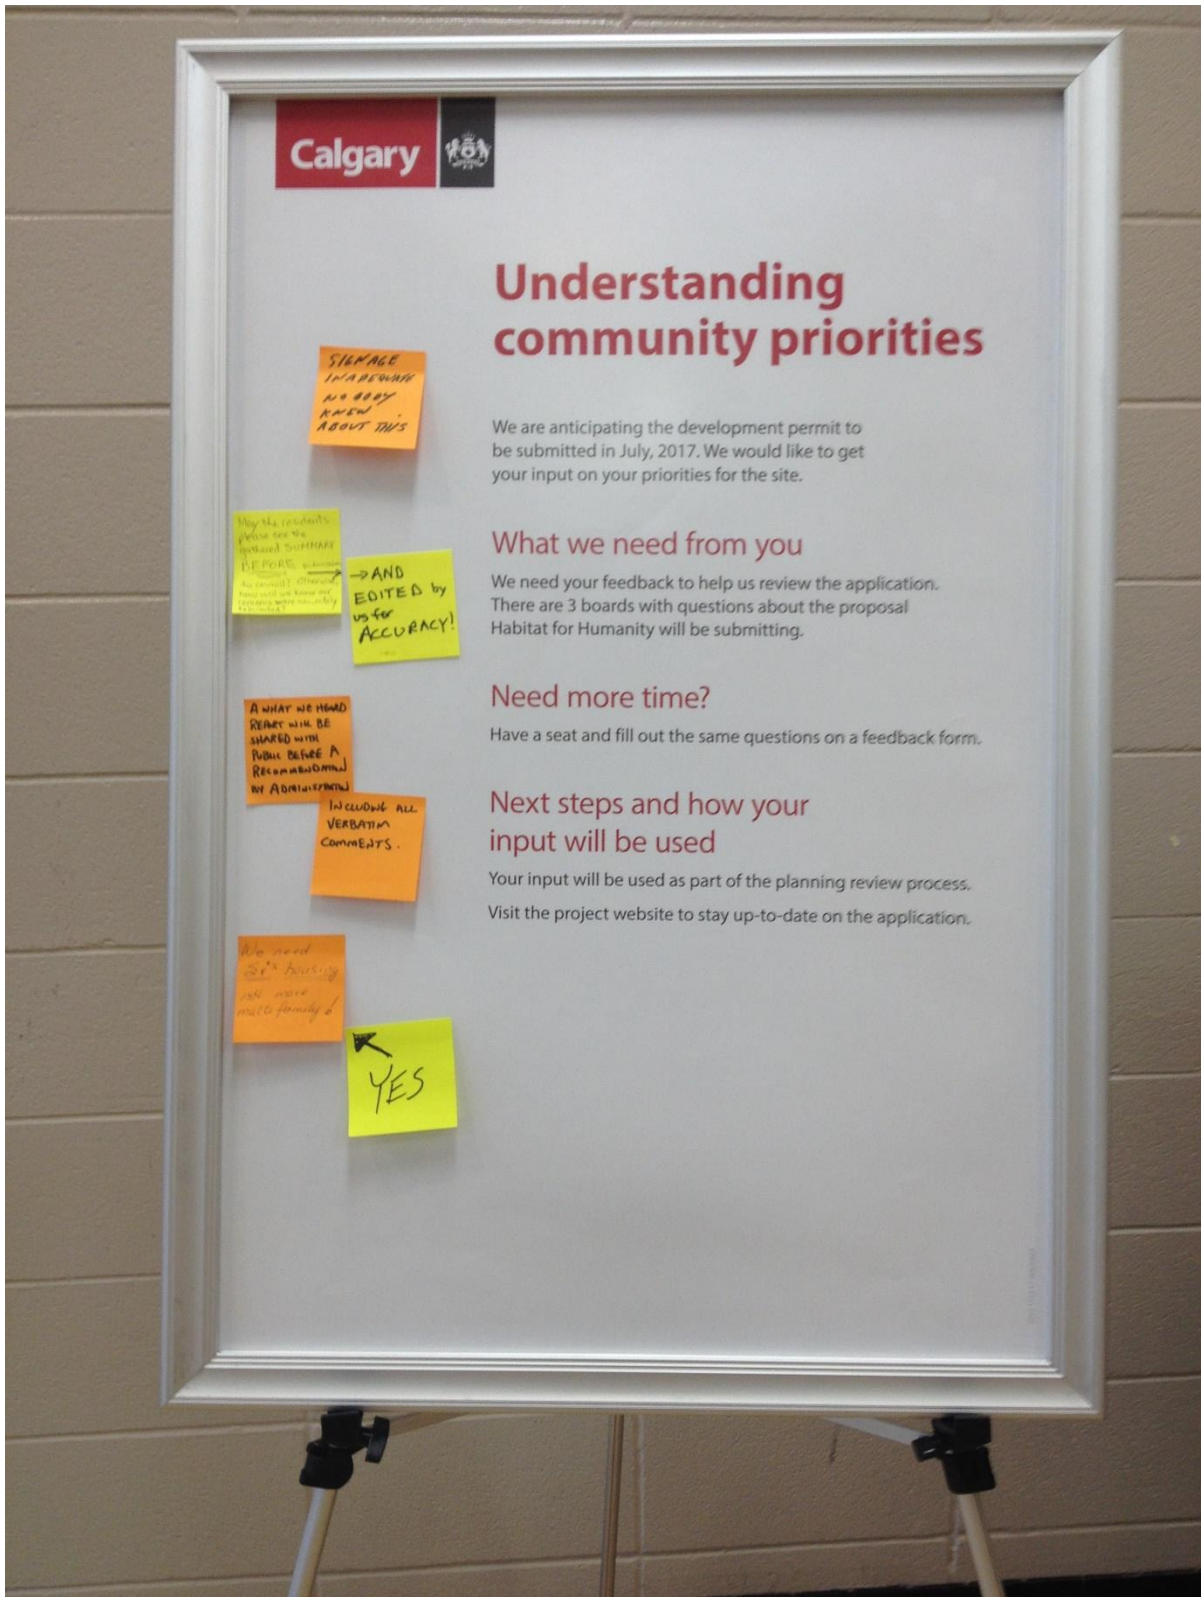 Calgary
Understanding
community priorities
We are anticipating the development permit to
be submitted in July, 2017. We would like to get
your input on your priorities for the site.
What we need from you
We need your feedback to help us review the application.
There are 3 boards with questions about the proposal
Habitat for Humanity will be submitting.
Need more time?
Have a seat and fill out the same questions on a feedback form.
Next steps and how your
input will be used
Your input will be used as part of the planning review process.
Visit the project website to stay up-to-date on the application.
SIGNAGE
INADEQUATE
NOBODY
KNEW
ABOUT THIS
May the residents
please see the
gathered SUMMARY
BEFORE
to council? Otherwise
how will we know our
concerns were
→ AND
EDITED by
us for
ACCURACY!
A WHAT WE HEARD
REPORT WILL BE
SHARED WITH
PUBLIC BEFORE A
RECOMMENDATION
BY ADMINISTRATION
INCLUDING ALL
VERBATIM
COMMENTS.
We need
Sr's housing
not more
multi family!
YES